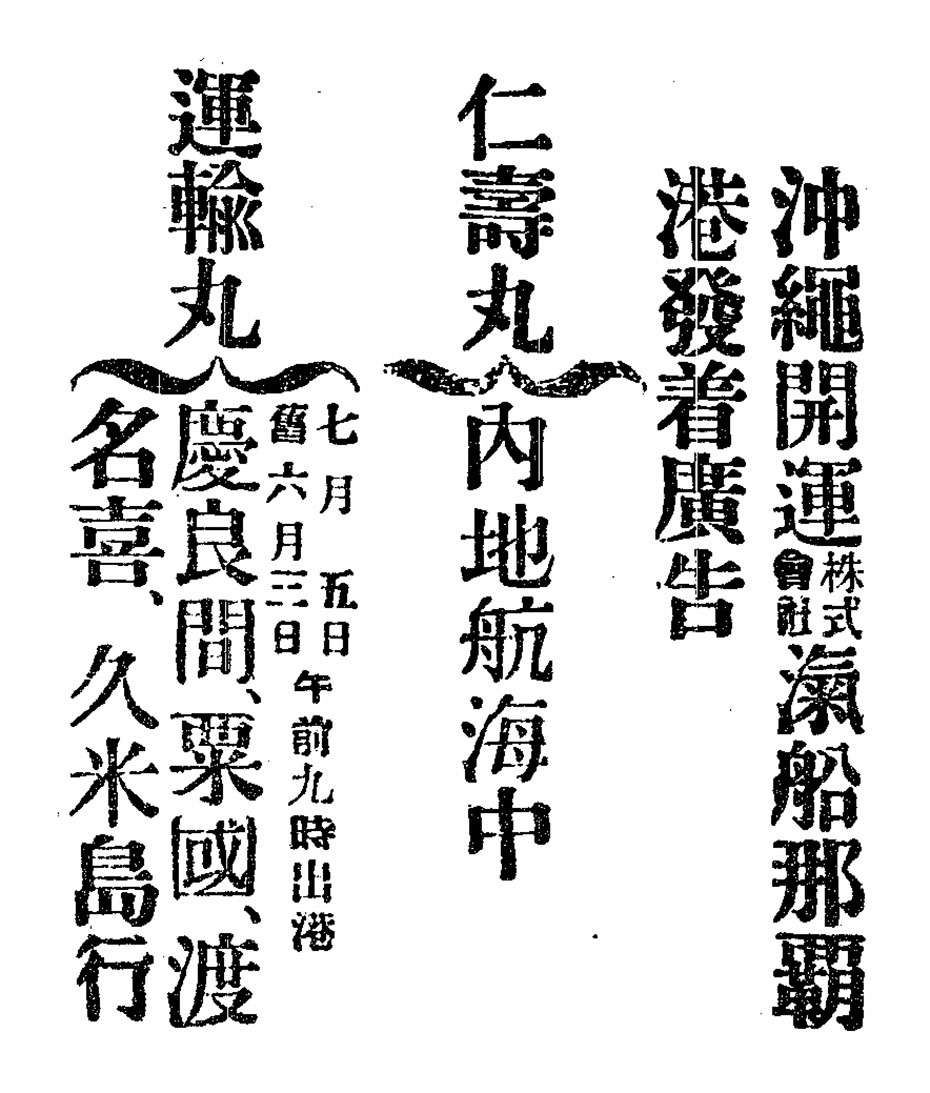 沖繩開運株式會社滊船那覇
港發着廣告
仁壽丸
内地航海中
運輸丸
七月五日
舊六月三日
午前九時出港
慶良間、粟國、渡
名喜、久米島行